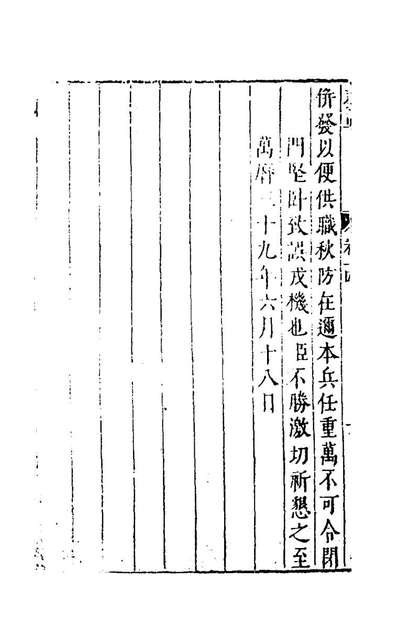 併發以便供職秋防在邇本兵任重萬不可令閉
門堅卧致誤戎機也臣不勝激切祈懇之至
萬曆三十九年六月十八日